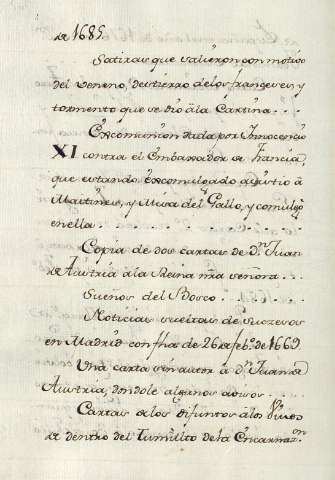 de 1685.
Satiras que salieron con motivo
del veneno, destierro de los franceses, y
tormento que se dio â la Cantina.
Excomunion dada por Innocencio
XI contra el Embaxador de Francia,
que estando excomulgado assistio â
Maitines, y Missa del Gallo, y comulgò
en ella. . . . . . . . .
Copia de dos cartas de Dn. Juan
de Austria â la Reina nrâ señora. . . .
Sueños del Bosco. . . . . .
Noticias sueltas de sucesos
en Madrid con fha de 26 de febo. de 1669
Una carta sin autor â Dn. Juan de
Austria, dandole algunos avisos. . .
Cartas de los difuntos â los vivos
de dentro del Tumulto de la Encarnaon.